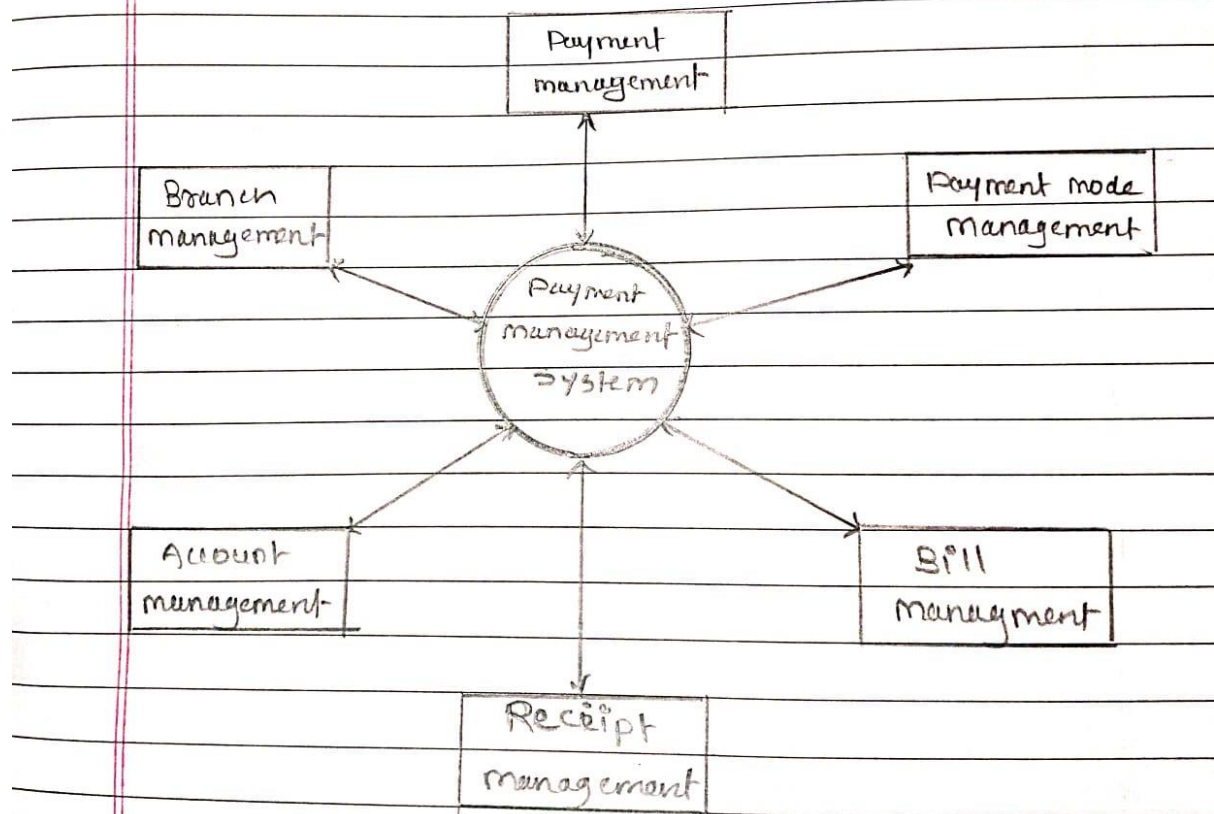 Payment
management
Branch
management
Payment mode
management
Payment
management
System
Account
management
Bill
managment
Receipt
management